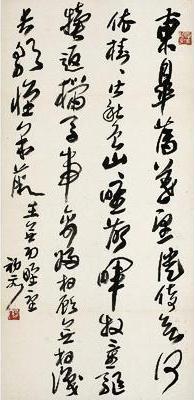 東皋薄暮望徙倚欲何
依樹〻皆秋色山〻唯落暉牧童驅
犢返獵馬帶禽歸相顧無相識
長歌懷采薇
王無功野望